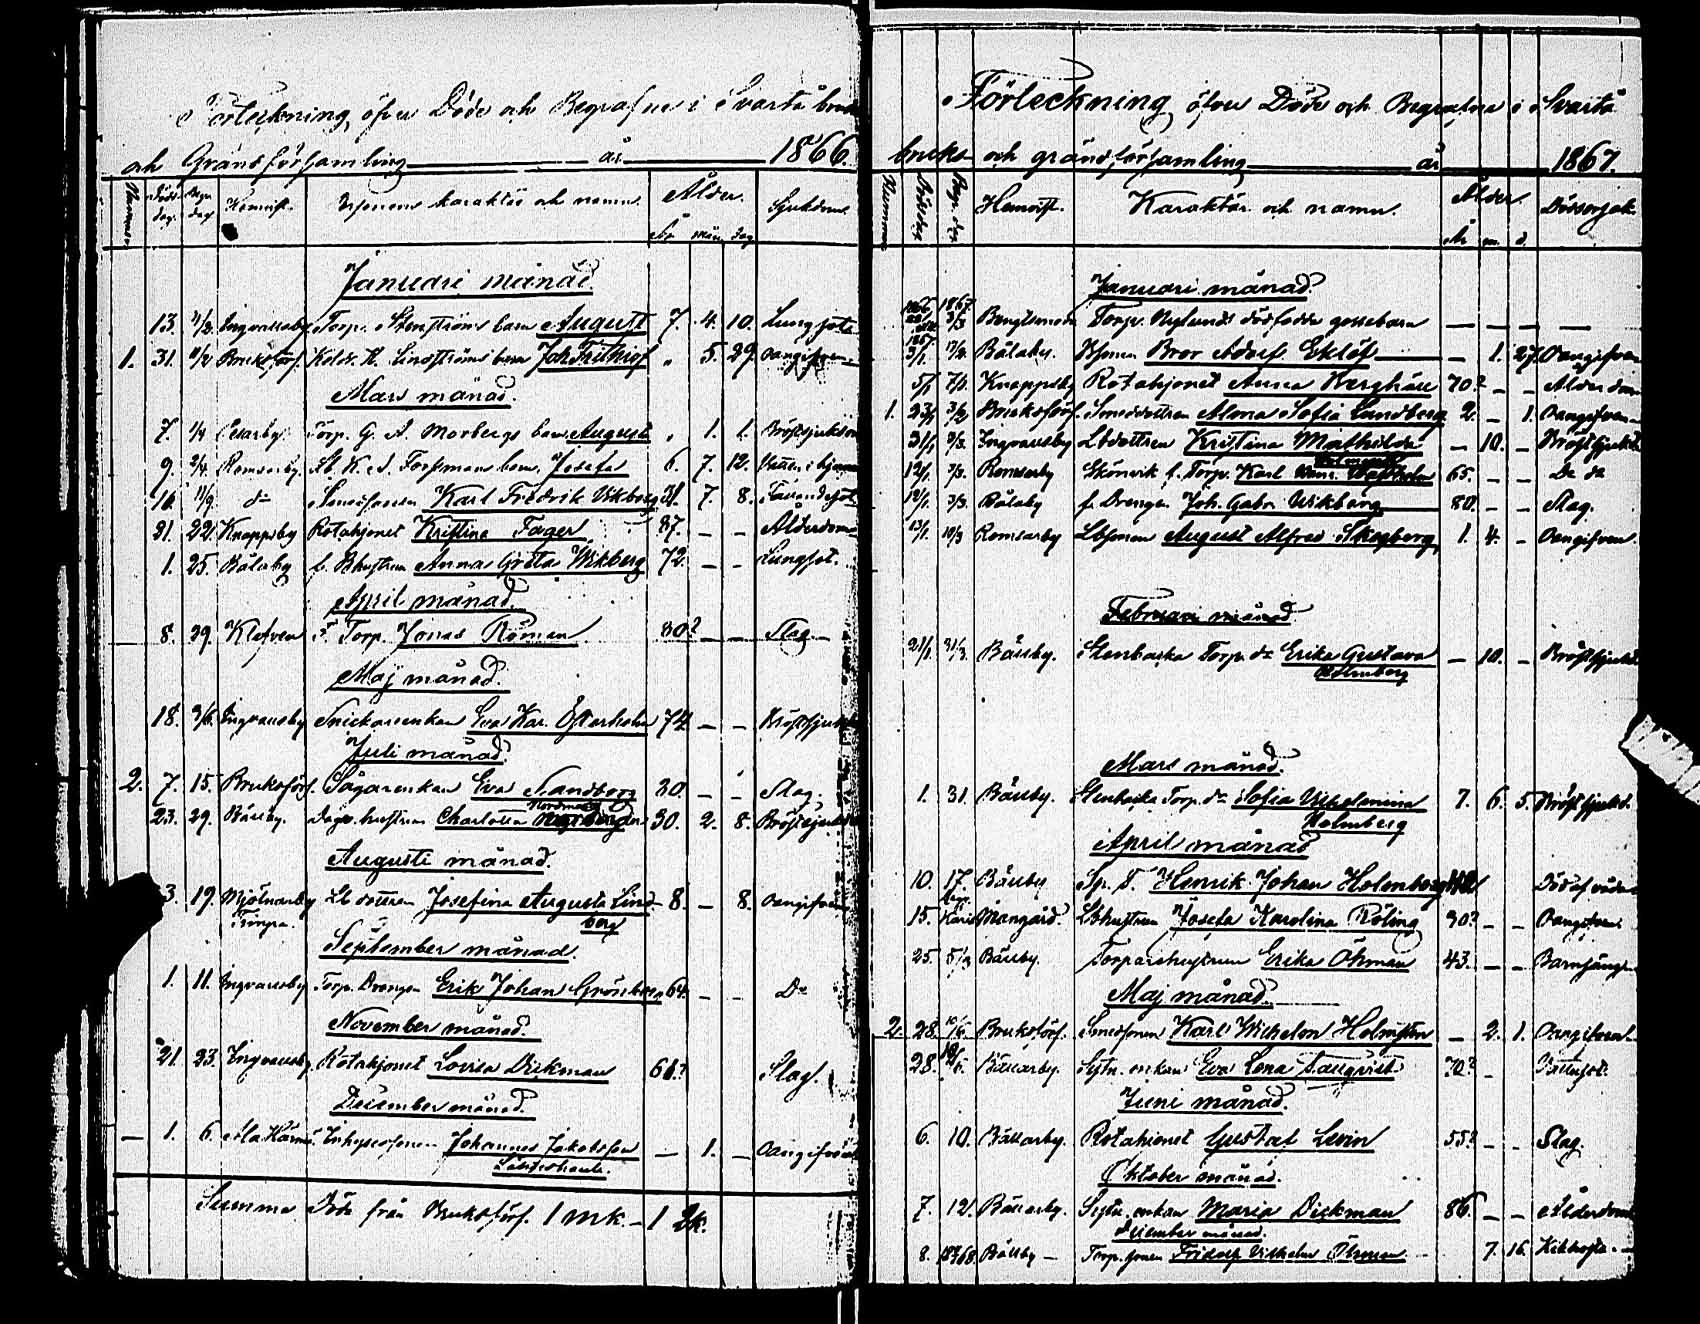 Förteckning öfver Döde och Begrafne i Svartå bruks
och Gränsförsamling år 1866.
Nummer Döds dag. Begr. dag Hemvist. Personens karaktär och namn. Ålder. Sjukdom.
År mån. dag
Januari månad.
13. Ingvallsby Torp. Stenströms barn August 7. 4. 10. Lungsot
1. 31. Bruksförs. Lindströms barn Joh. Frithiof " 5. 29. Oangifven
Mars månad.
7. 1/4 Torp. G. A. Morbergs barn August " 1. 1. Bröstsjukdom
9. 2/4 Romsarby. K. A. Forsmans barn. Josefa 6. 7. 12.
16. do Smedsonen Karl Fredrik Vikberg 31. 7. 8.
21. 22. Knappsby Rotehjonet Kristina Fager 87. – – Ålderdom
1. 25. Bålaby f. Bhustrun Anna Greta Wikberg 72. – – Lungsot.
April månad.
8. 29. Klefven F. Torp. Jonas Roman 80? – – Slag
Maj månad.
18. 3/6. Ingvallsby Snickarenkan Eva Kar. Österholm 74 – – Bröstsjukd.
Juli månad.
2. 7. 15. Bruksförs. Sågarenkan Eva Sandberg 80. – – Slag.
23. 29. Bällby. Dagw. hustrun Charlotta Nordman 50. 2. 8. Bröstsjukd.
Augusti månad.
3. 19. Mjölnarby Lb dottren Josefina Augusta Lind- 8. – 8. Oangifven
berg
September månad.
1. 11. Ingvallsby Torp. Drengen Erik Johan Grönberg 64. – – Do
November månad.
21. 23. Ingvallsby Rotehjonet Lovisa Dickman 61? Slag.
December månad.
– 1. 6. Inhysessonen Johannes Jakobsson – 1. – Oangifven
Summa Döde från Bruksförs. 1 mk. – 1 qk.
Förteckning öfver Döde och Begrafne i Svartå
bruks och gränsförsamling år 1867.
Nummer Dödsdag Begr. dag Hemvist. Karaktär och namn. Ålder. Dödsorsak
År m. d.
Januari månad.
1867 Torp. Nylunds dödfödda gossebarn – – –
3/1. Bålaby. Bror Adolf Eklöf – 1. 27. Oangifven
5/1 Knappsby Rotehjonet Anna Berghäll 70? – – Ålderdom
1. 23/1 3/2 Bruksförs. Smeddottren Alma Sofia Sandberg 2. – 1. Oangifven
31/1 Ingvallsby Lbdottren Kristina Mathilda – 10. – Bröstsjukd.
12/1. 3/3. Romsarby Skörvik f. Torp. Karl 65. – – Do do
12/1. 3/3. Bålaby f. Drengen Joh. Gabr. Wikberg 80. – – Slag.
13/1. 10/3 Romsarby Lbsonen August Alfred Skogberg 1. 4. – Oangifven
Februari månad
21/1. 31/3. Bällby. Stenbacka Torp. dr Erika Gustava – 10. – Bröstsjukd.
Holmberg
Mars månad.
1. 31. Bällby. Stenbacka Torp. dr Sofia Vilhelmina 7. 6. 5. Bröstsjukd.
Holmberg
April månad
10. 17. Bällby Henrik Johan Holmberg Död af våda
15. Mangård. Lbhustrun Josefa Karolina Röling 30? – – Oangifven
25. 5/3 Bällby. Torparehustrun Erika Öhman 43. – – Barnsäng
Maj månad.
2. 28. Bruksförs. Smedsonen Karl Wilhelm Holmsten – 2. 1. Oangifven
28. Bällarby. Sytn. enkan Eva Lena Tallqvist 70? –
Juni månad.
6. 10. Bällarby. Rotehjonet Gustaf Levin 55? – – Slag.
Oktober månad.
7. 12. Bällarby. Sytn. enkan Maria Dickman 86. – – Ålderdom
December månad.
8. Bällby – Torp. sonen Fridolf Vilhelm Öhman 7. 16. Kikhosta